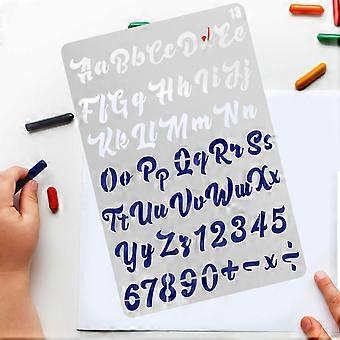 13
Aa Bb Cc Dd Ee
Ff Gg Hh Ii Jj
Kk Ll Mm Nn
Oo Pp Qq Rr Ss
Tt Uu Vv Ww Xx
Yy Zz 1 2 3 4 5
6 7 8 9 0 + - × ÷